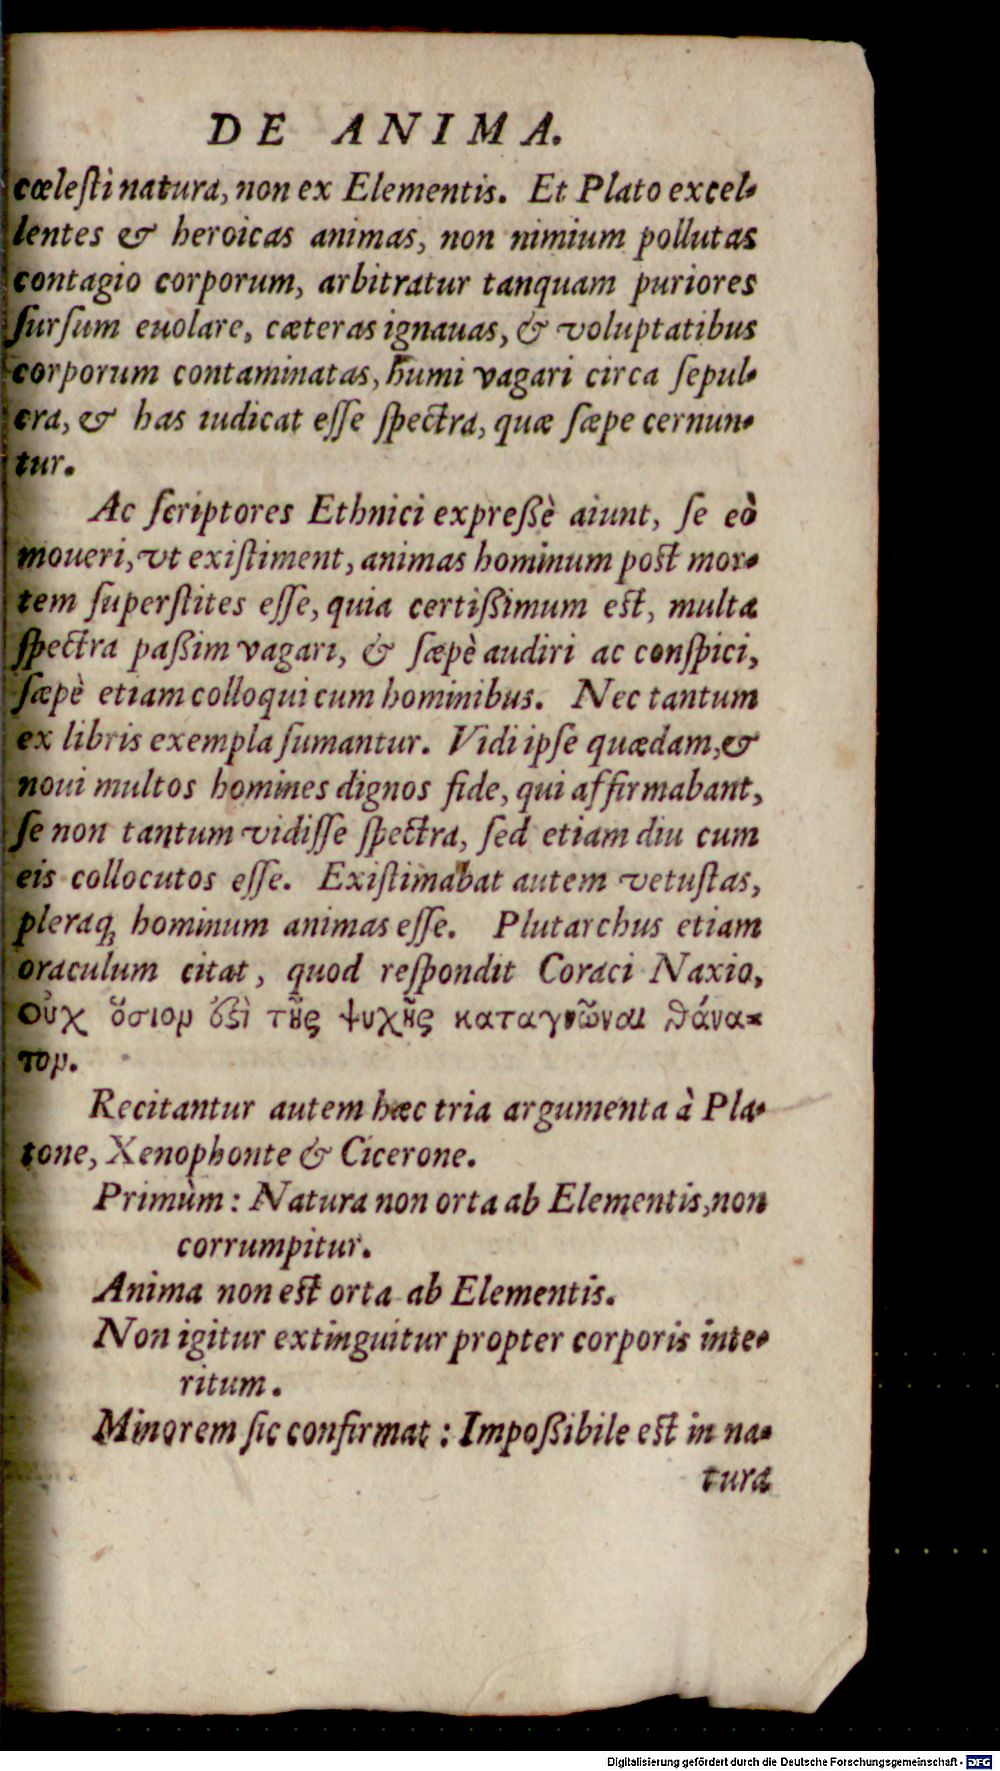 DE ANIMA.
cœleſti natura, non ex Elementis. Et Plato excel-
lentes & heroicas animas, non nimium pollutas
contagio corporum, arbitratur tanquam puriores
ſurſum euolare, cæteras ignauas, & voluptatibus
corporum contaminatas, humi vagari circa ſepul-
cra, & has iudicat eſſe ſpectra, quæ ſæpe cernun-
tur.
Ac ſcriptores Ethnici expreßè aiunt, ſe eò
moueri, vt exiſtiment, animas hominum poſt mor-
tem ſuperſtites eſſe, quia certißimum eſt, multa
ſpectra paßim vagari, & ſæpè audiri ac conſpici,
ſæpè etiam colloqui cum hominibus. Nec tantum
ex libris exempla ſumantur. Vidi ipſe quædam, &
noui multos homines dignos fide, qui affirmabant,
ſe non tantum vidiſſe ſpectra, ſed etiam diu cum
eis collocutos eſſe. Exiſtimabat autem vetuſtas,
pleraq; hominum animas eſſe. Plutarchus etiam
oraculum citat, quod reſpondit Coraci Naxio,
Οὐχ ὅσιον ἐςὶ τῆς ψυχῆς καταγνῶναι θάνα-
τον.
Recitantur autem hæc tria argumenta à Pla-
tone, Xenophonte & Cicerone.
Primùm: Natura non orta ab Elementis, non
corrumpitur.
Anima non eſt orta ab Elementis.
Non igitur extinguitur propter corporis inte-
ritum.
Minorem ſic confirmat: Impoßibile eſt in na-
tura
Digitalisierung gefördert durch die Deutsche Forschungsgemeinschaft - DFG